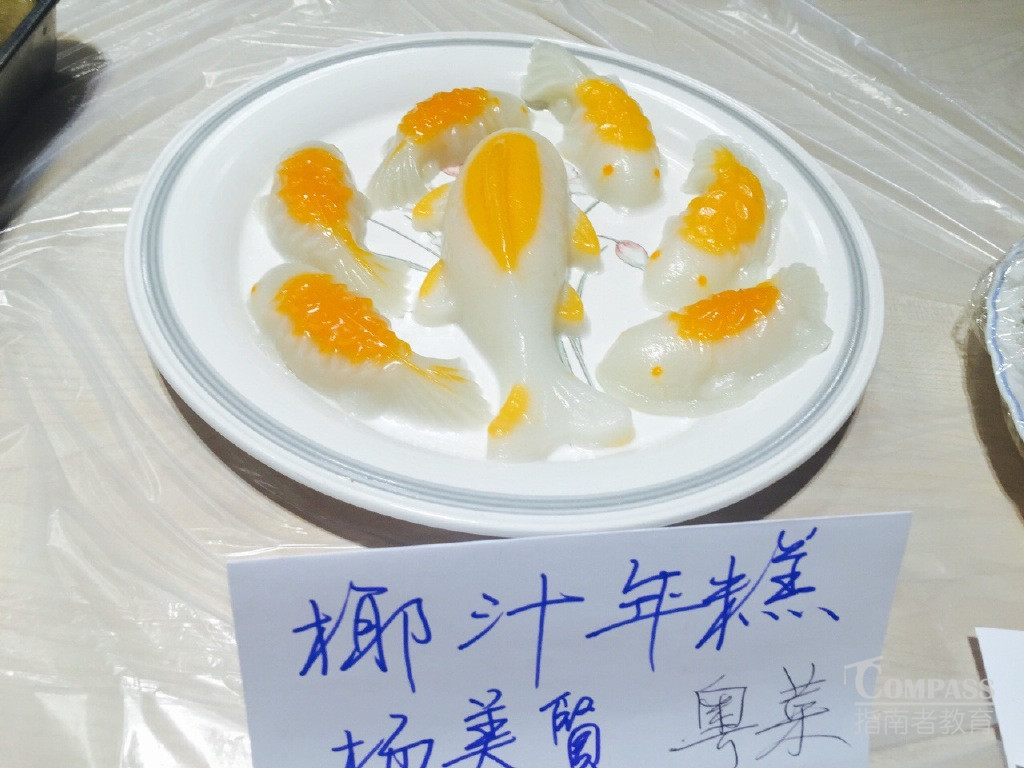 椰汁年糕
杨美贤 粤菜
COMPASS
指南者教育